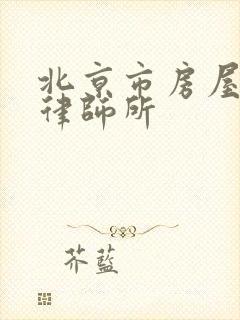 北京市房屋
律師所
芥藍